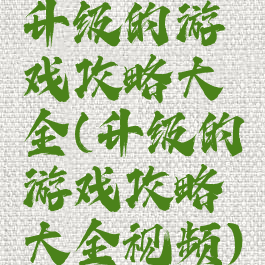 升级的游
戏攻略大
全(升级的
游戏攻略
大全视频)